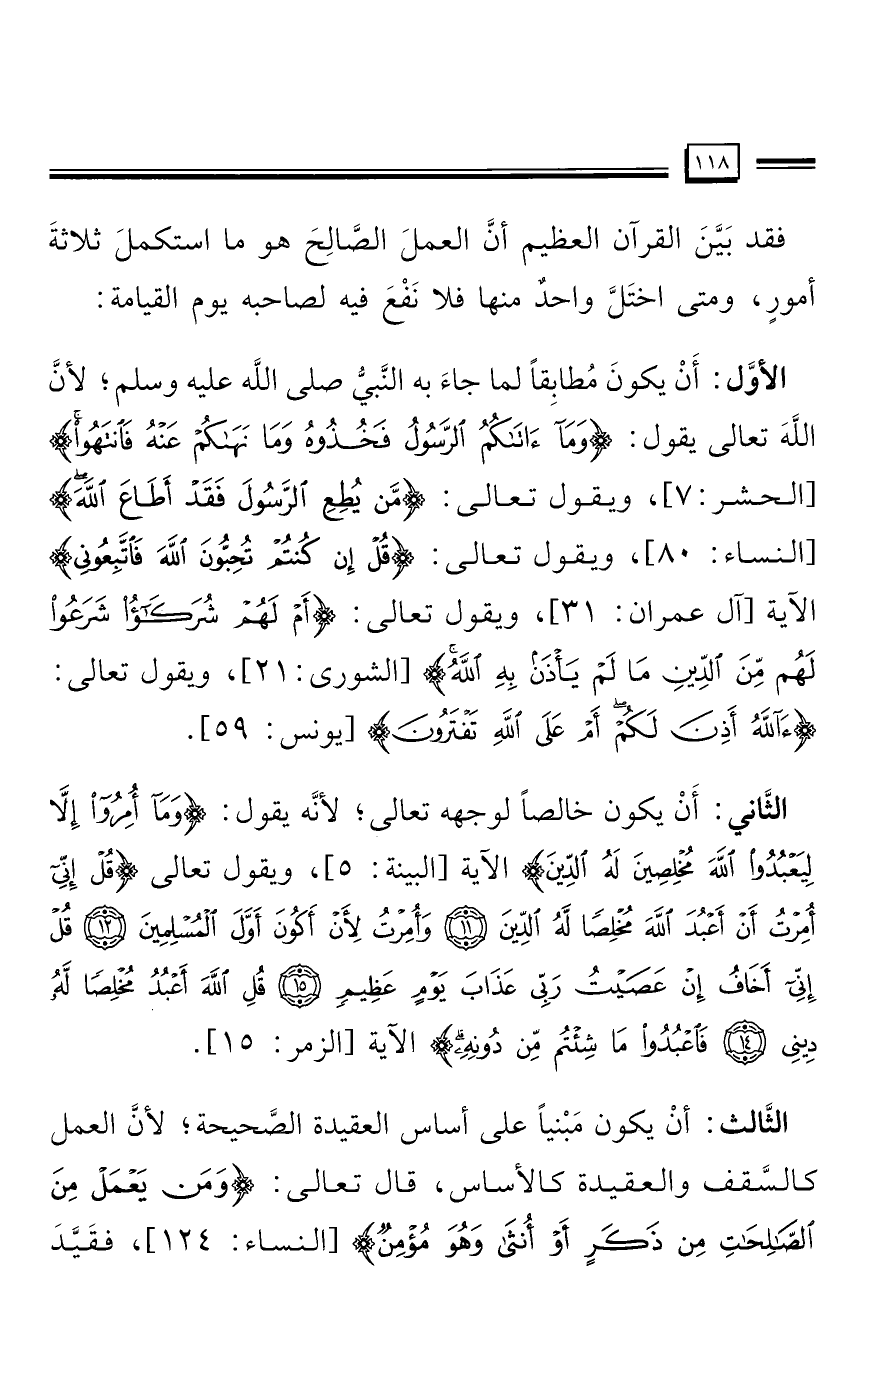 ١١٨
فقد بَيَّنَ القرآن العظيم أنَّ العملَ الصَّالِحَ هو ما استكملَ ثلاثةَ
أمورٍ، ومتى اختَلَّ واحدٌ منها فلا نَفْعَ فيه لصاحبه يوم القيامة:
الأوَّل: أَنْ يكونَ مُطابِقاً لما جاءَ به النَّبيُّ صلى اللَّه عليه وسلم؛ لأنَّ
اللَّهَ تعالى يقول: ﴿وَمَآ ءَاتَىٰكُمُ ٱلرَّسُولُ فَخُذُوهُ وَمَا نَهَىٰكُمْ عَنْهُ فَٱنتَهُوا۟ۚ﴾
[الحشر:٧]، ويقول تعالى: ﴿مَّن يُطِعِ ٱلرَّسُولَ فَقَدْ أَطَاعَ ٱللَّهَۖ﴾
[النساء: ٨٠]، ويقول تعالى: ﴿قُلْ إِن كُنتُمْ تُحِبُّونَ ٱللَّهَ فَٱتَّبِعُونِي﴾
الآية [آل عمران: ٣١]، ويقول تعالى: ﴿أَمْ لَهُمْ شُرَكَٰٓؤُا۟ شَرَعُوا۟
لَهُم مِّنَ ٱلدِّينِ مَا لَمْ يَأْذَنۢ بِهِ ٱللَّهُۚ﴾ [الشورى:٢١]، ويقول تعالى:
﴿ءَآللَّهُ أَذِنَ لَكُمْۖ أَمْ عَلَى ٱللَّهِ تَفْتَرُونَ﴾ [يونس: ٥٩].
الثَّاني: أَنْ يكون خالصاً لوجهه تعالى؛ لأنَّه يقول: ﴿وَمَآ أُمِرُوٓا۟ إِلَّا
لِيَعْبُدُوا۟ ٱللَّهَ مُخْلِصِينَ لَهُ ٱلدِّينَ﴾ الآية [البينة: ٥]، ويقول تعالى ﴿قُلْ إِنِّىٓ
أُمِرْتُ أَنْ أَعْبُدَ ٱللَّهَ مُخْلِصًا لَّهُ ٱلدِّينَ ١١ وَأُمِرْتُ لِأَنْ أَكُونَ أَوَّلَ ٱلْمُسْلِمِينَ ١٢ قُلْ
إِنِّىٓ أَخَافُ إِنْ عَصَيْتُ رَبِّى عَذَابَ يَوْمٍ عَظِيمٍ ١٥ قُلِ ٱللَّهَ أَعْبُدُ مُخْلِصًا لَّهُۥ
دِينِى ١٤ فَٱعْبُدُوا۟ مَا شِئْتُم مِّن دُونِهِۦۗ﴾ الآية [الزمر: ١٥].
الثَّالث: أنْ يكون مَبْنياً على أساس العقيدة الصَّحيحة؛ لأنَّ العمل
كالسَّقف والعقيدة كالأساس، قال تعالى: ﴿وَمَن يَعْمَلْ مِنَ
ٱلصَّٰلِحَٰتِ مِن ذَكَرٍ أَوْ أُنثَىٰ وَهُوَ مُؤْمِنٌ﴾ [النساء: ١٢٤]، فقَيَّدَ